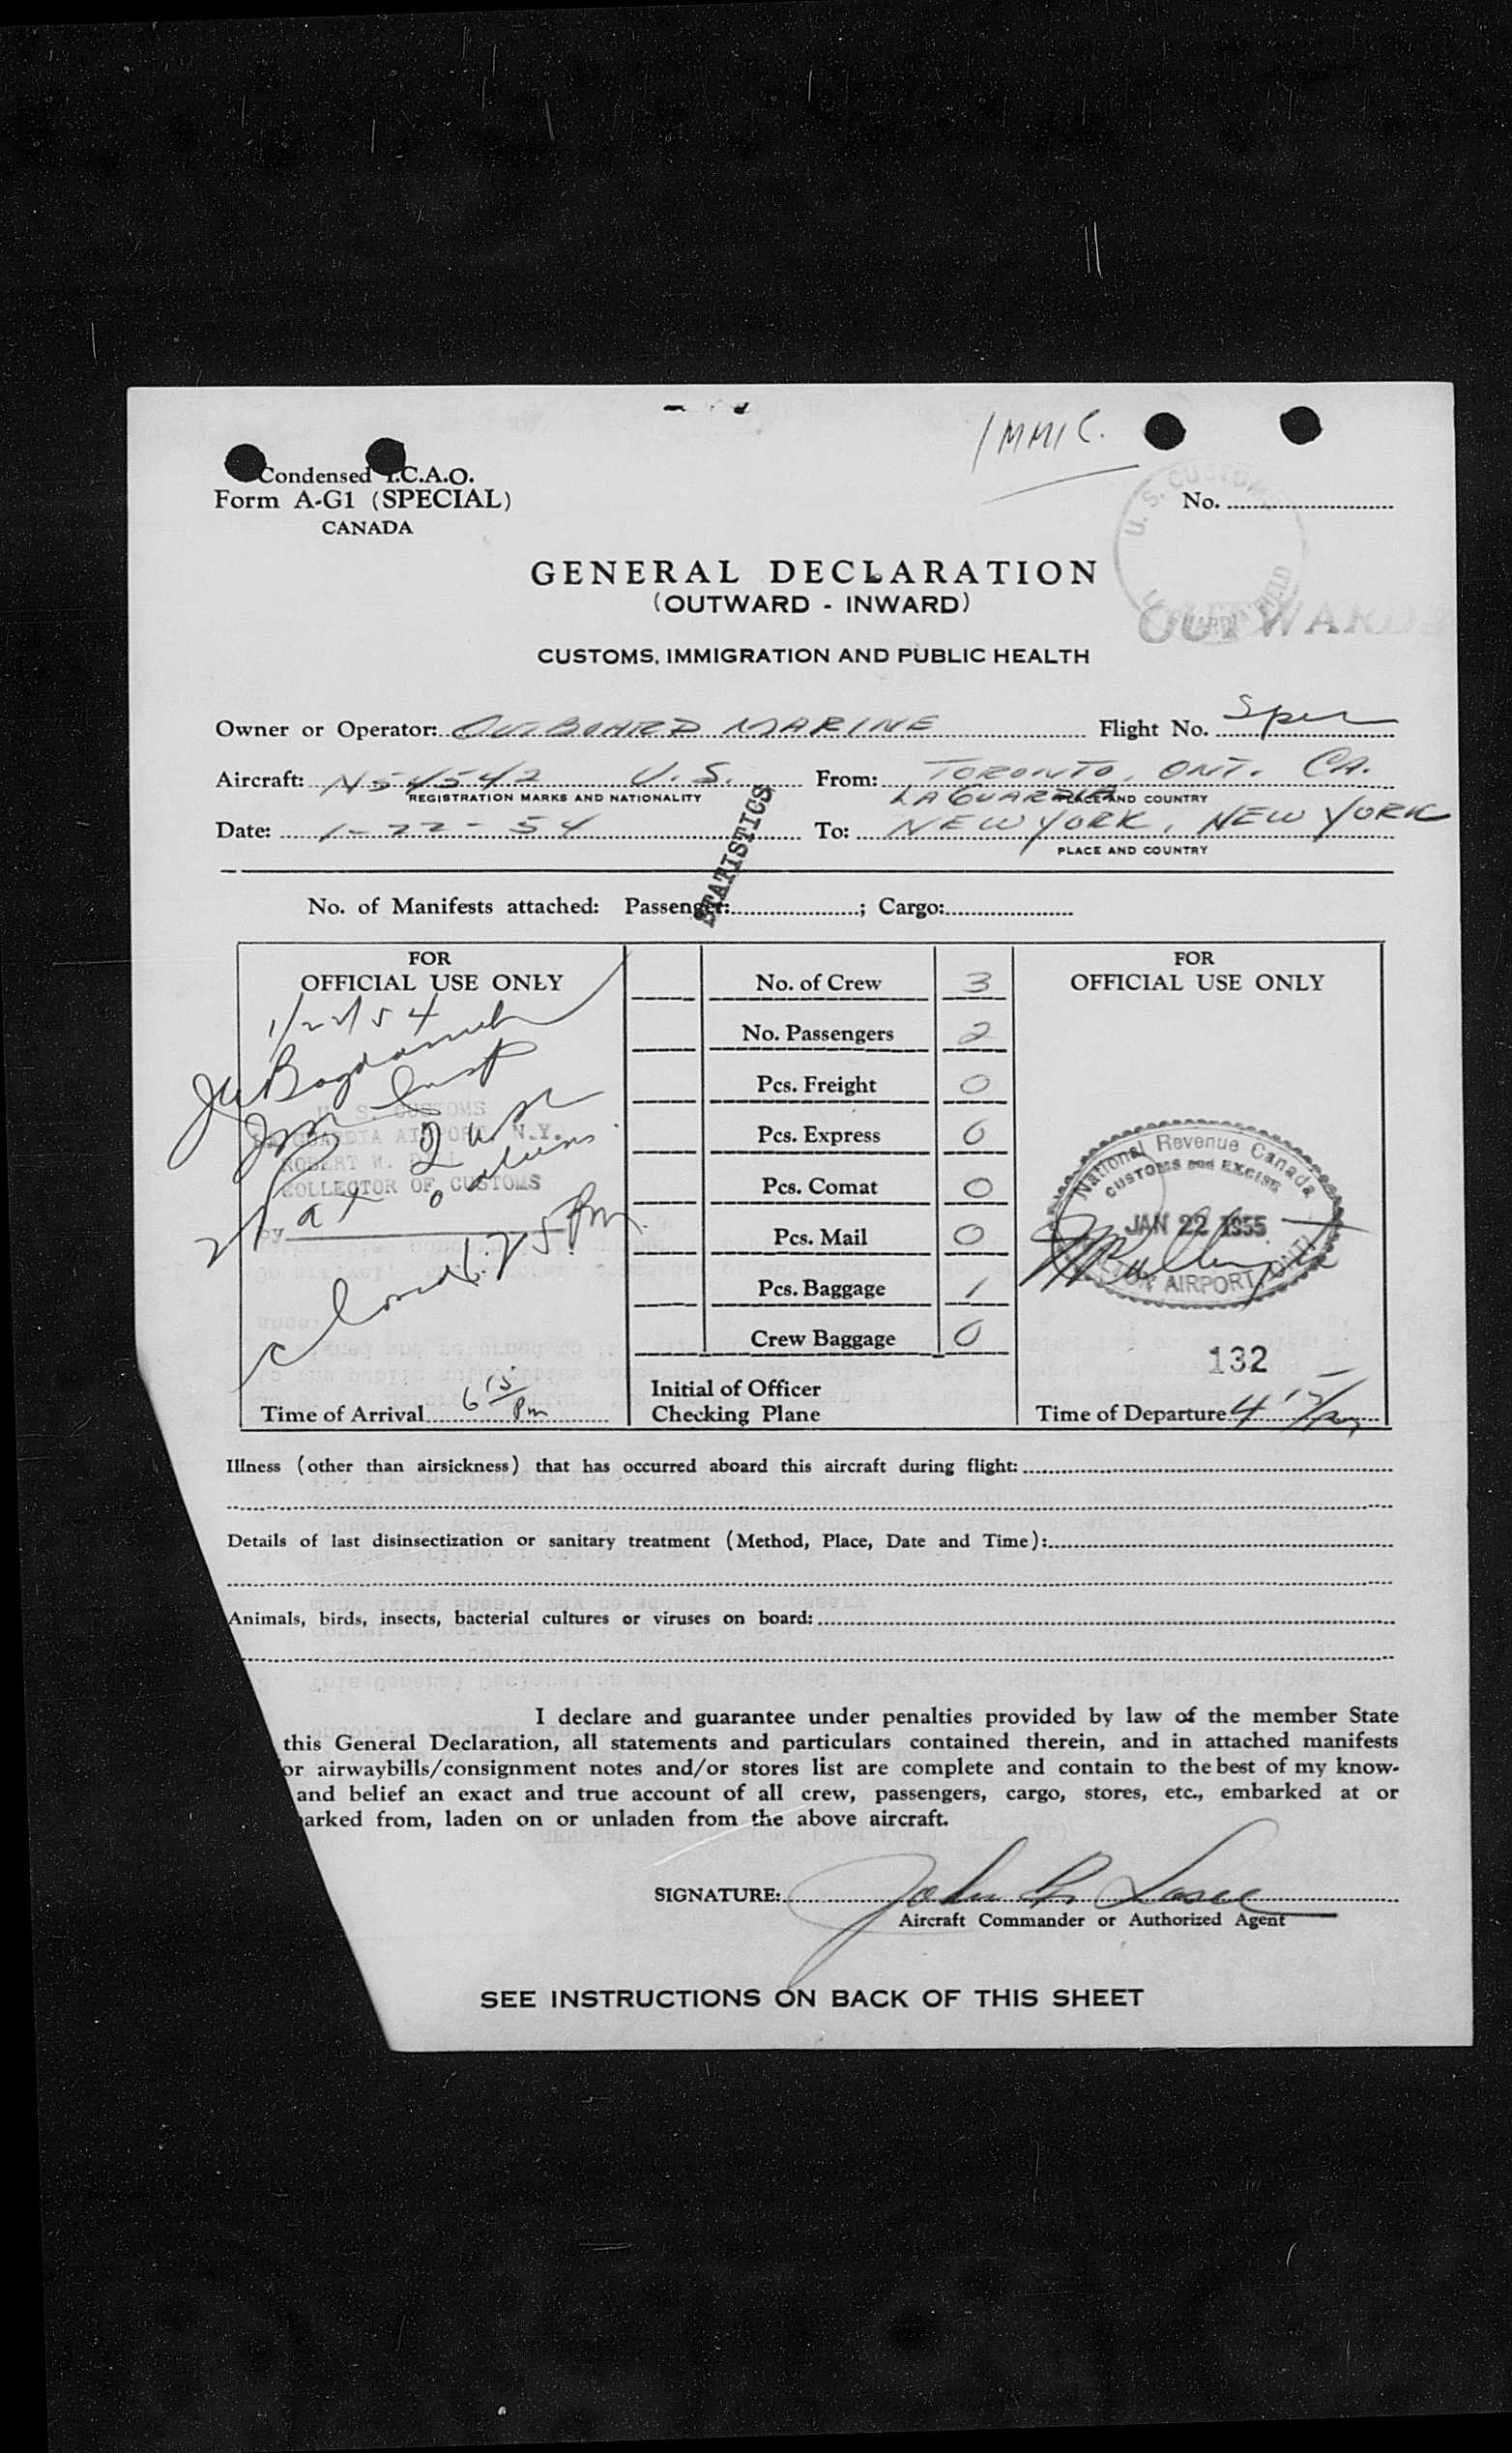 IMMIG.
Condensed I.C.A.O.
Form A-G1 (SPECIAL)
CANADA
No.
U. S. CUSTOMS
OUTWARD
GENERAL DECLARATION
(OUTWARD - INWARD)
CUSTOMS, IMMIGRATION AND PUBLIC HEALTH
Owner or Operator: OUTBOARD MARINE Flight No. Spec
Aircraft: N54542 U.S. From: TORONTO, ONT. CA.
REGISTRATION MARKS AND NATIONALITY PLACE AND COUNTRY
LA GUARDIA
Date: 1-22-54 To: NEW YORK, NEW YORK
PLACE AND COUNTRY
STATISTICS
No. of Manifests attached: Passenger: ; Cargo:
FOR
OFFICIAL USE ONLY
1/22/54
U. S. CUSTOMS
LA GUARDIA AIRPORT, N.Y.
ROBERT W.
COLLECTOR OF CUSTOMS
by
2 aliens
Closed 6:25 Pm.
Time of Arrival 6 15 Pm
No. of Crew 3
No. Passengers 2
Pcs. Freight 0
Pcs. Express 0
Pcs. Comat 0
Pcs. Mail 0
Pcs. Baggage 1
Crew Baggage 0
Initial of Officer
Checking Plane
FOR
OFFICIAL USE ONLY
National Revenue Canada
CUSTOMS and EXCISE
JAN 22 1955
MALTON AIRPORT, ONT.
132
Time of Departure 4 15/pm
Illness (other than airsickness) that has occurred aboard this aircraft during flight:
Details of last disinsectization or sanitary treatment (Method, Place, Date and Time):
Animals, birds, insects, bacterial cultures or viruses on board:
I declare and guarantee under penalties provided by law of the member State
this General Declaration, all statements and particulars contained therein, and in attached manifests
or airwaybills/consignment notes and/or stores list are complete and contain to the best of my know-
and belief an exact and true account of all crew, passengers, cargo, stores, etc., embarked at or
arked from, laden on or unladen from the above aircraft.
SIGNATURE: John
Aircraft Commander or Authorized Agent
SEE INSTRUCTIONS ON BACK OF THIS SHEET